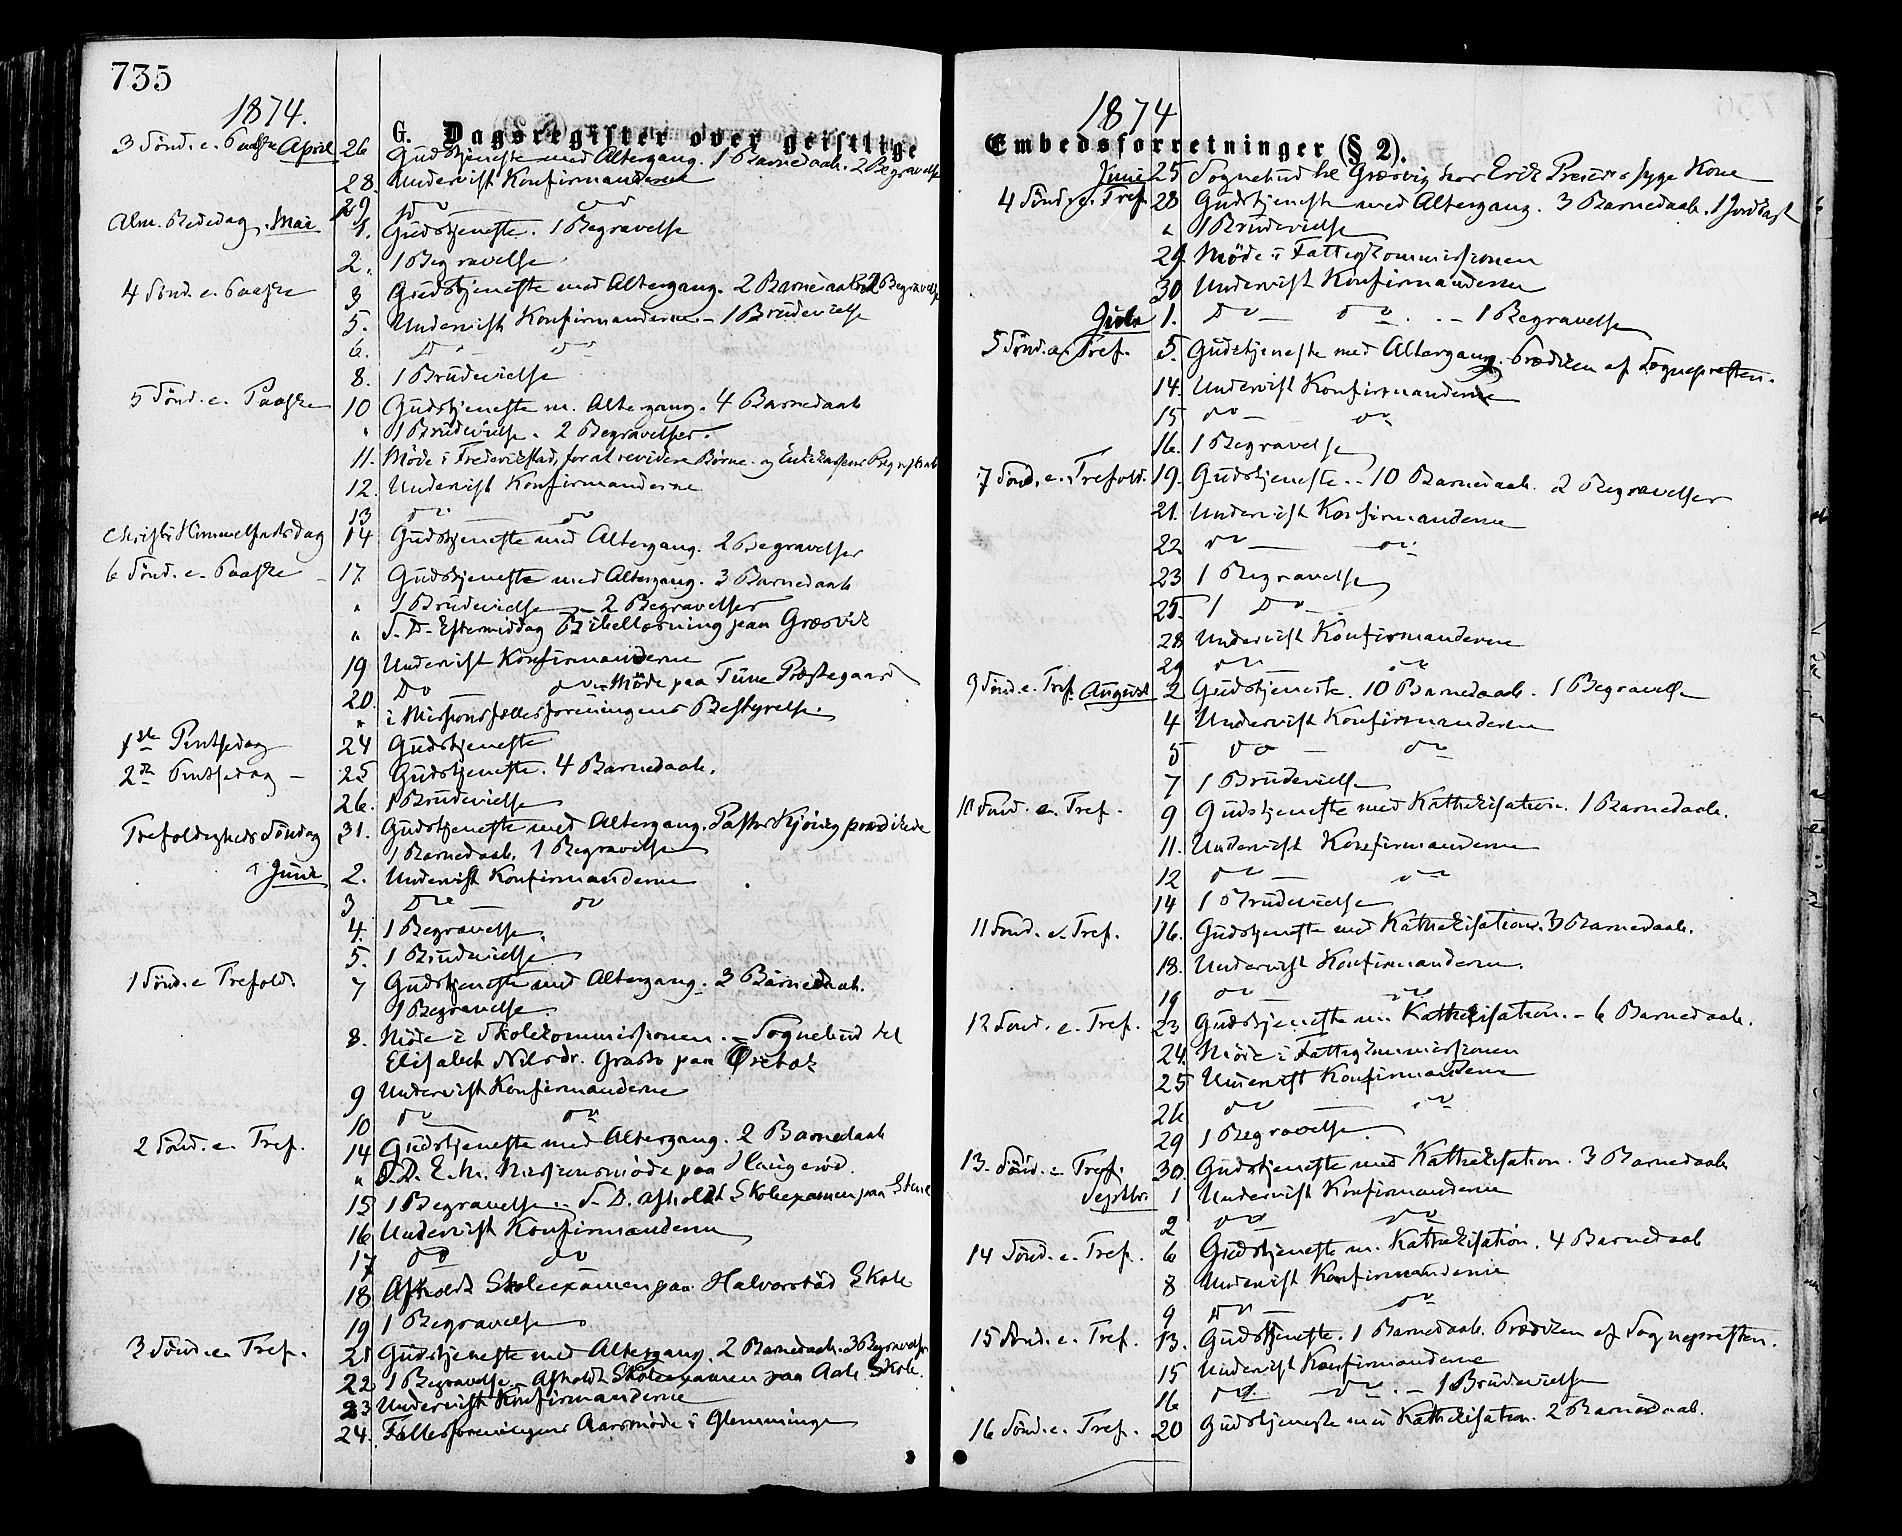 735
1874.
G. Dagsregister over geistlige
3 Sønd. e. Paaske April 26 Gudstjeneste med Altergang. 1 Barnedaab. 2 Begravelse
28. Undervist Konfirmanderne
29 do — do
Alm. Bededag. Mai 1. Gudstjeneste. 1 Begravelse
2. 1 Begravelse
4 Sønd. e. Paaske 3 Gudstjeneste med Altergang. 2 Barnedaab 2 Begravelse
5. Undervist Konfirmanderne — 1 Brudevielse
6. Do — do
8. 1 Brudevielse
5 Sønd. e. Paaske 10 Gudstjeneste m. Altergang. 4 Barnedaab
" 1 Brudevielse. 2 Begravelser.
11. Møde i Frederikstad, for at revidere Børne- og Enkekassens Regnskab
12. Undervist Konfirmanderne
13 do — do
Christi Himmelfartsdag 14 Gudstjeneste med Altergang. 2 Begravelser
6 Sønd. e. Paaske – 17. Gudstjeneste med Altergang. 3 Barnedaab
" 1 Brudevielse — 2 Begravelser
" S. D. Eftermiddag Bibellæsning paa Græsvik
19 Undervist Konfirmanderne
20. Do — do — Møde paa Tune Præstegaard
" i Missionsfællesforeningens Bestyrelse.
1ste Pintsedag 24 Gudstjeneste
2den Pintsedag – 25 Gudstjeneste. 4 Barnedaab.
26. 1 Brudevielse
Trefoldigheds Søndag 31. Gudstjeneste med Altergang. Pastor Kjønig prædikede
1 Barnedaab. 1 Begravelse
Juni 2. Undervist Konfirmanderne
3 Do — do
4. 1 Begravelse.
5. 1 Brudevielse
1 Sønd. e Trefold. 7 Gudstjeneste med Altergang. 3 Barnedaab.
1 Begravelse.
8. Møde i Skolekommissionen. – Sognebud til
Elisabeth Nilsdr. paa
9 Undervist Konfirmanderne
10 do — do
2 Sønd. e. Tref. 14 Gudstjeneste med Altergang. 2 Barnedaab
" S. D. E. M. Missionsmøde paa Haugerød.
15 1 Begravelse. – S. D. afholdt Skoleexamen paa
16 Undervist Konfirmanderne
17 do do
18 Afholdt Skoleexamen paa Halvorsrød Skole
19 1 Begravelse
3 Sønd. e. Tref. 21 Gudstjeneste med Altergang. 2 Barnedaab. 3 Begravelser
22 1 Begravelse. – Afholdt Skoleexamen paa Aale Skole.
23 Undervist Konfirmanderne
24. Fællesforeningens Aarsmøde i Glemminge
1874
Embedsforretninger (§ 2).
Juni 25 Sognebud til Græsvig hos Erik syge Kone
4 Sønd. e. Tref. 28 Gudstjeneste med Altergang. 3 Barnedaab. 1 Jordfæst
" 1 Brudevielse
29. Møde i Fattigkommissionen
30 Undervist Konfirmanderne
Juli 1. Do — do. – 1 Begravelse
5 Sønd. e. Tref. 5. Gudstjeneste med Altergang. Prædiken af Sognepresten.
14. Undervist Konfirmanderne
15 do — do
16. 1 Begravelse
7 Sønd. e. Trefold. 19. Gudstjeneste. – 10 Barnedaab. 2 Begravelser
21. Undervist Konfirmanderne
22 do — do
23 1 Begravelse
25. 1 Do
28. Undervist Konfirmanderne
29 do — do
9 Sønd. e. Tref. August 2 Gudstjeneste. 10 Barnedaab. 1 Begravelse
4 Undervist Konfirmanderne
5 do — do
7 1 Brudevielse
10 Sønd. e. Tref. 9 Gudstjeneste med Kathekisation. 1 Barnedaab.
11. Undervist Konfirmanderne
12 do — do
14 1 Brudevielse
11 Sønd. e. Tref. 16. Gudstjeneste med Kathekisation. 3 Barnedaab.
18. Undervist Konfirmanderne.
19 do — do
12 Sønd. e. Tref. 23 Gudstjeneste m. Kathekisation. – 6 Barnedaab.
24. Møde i Fattigkommissionen
25 Undervist Konfirmanderne
26 do — do
29 1 Begravelse.
13. Sønd. e Tref. 30. Gudstjeneste med Kathekisation. 3 Barnedaab
Septbr. 1 Undervist Konfirmanderne
2 do do
14 Sønd. e. Tref. 6 Gudstjeneste m. Kathekisation. 4 Barnedaab
8 Undervist Konfirmanderne
9 Do — do
15 Sønd. e. Tref. 13. Gudstjeneste. 1 Barnedaab. Prædiken af Sognepresten.
15 Undervist Konfirmanderne
16 do. do. – 1 Brudevielse
16 Sønd. e. Tref. 20 Gudstjeneste med Kathekisation. 2 Barnedaab.